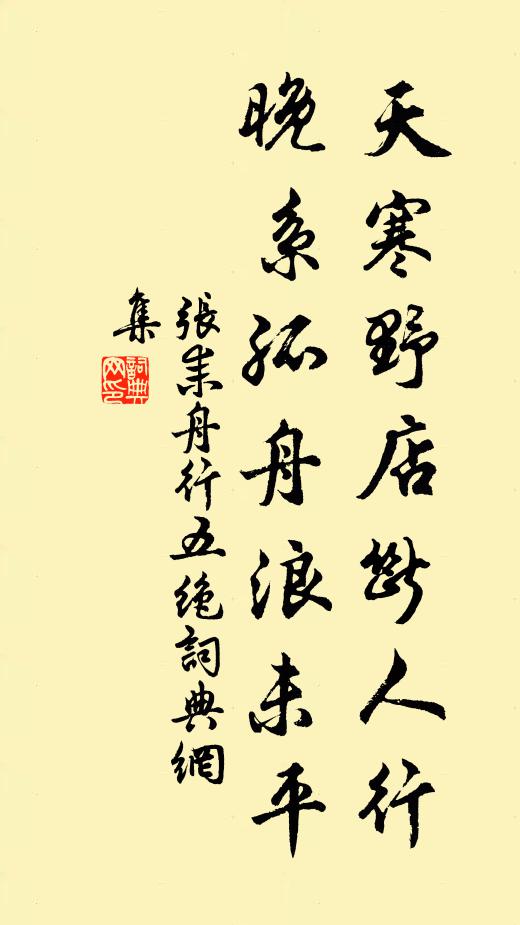 天寒野店斷人行
晚系孤舟浪未平
張耒舟行五绝詞典網
集
詞典
网印